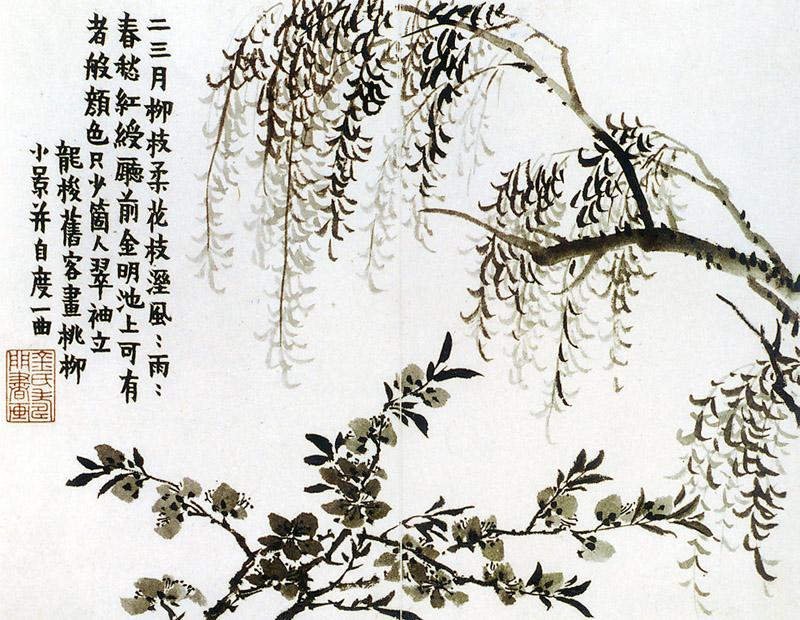 二三月柳枝柔花枝溼風〻雨〻
春愁紅綬廳前金明池上可有
者般顔色只少箇人翠袖立
龍梭舊客畫桃柳
小景并自度一曲
金氏壽門書畫